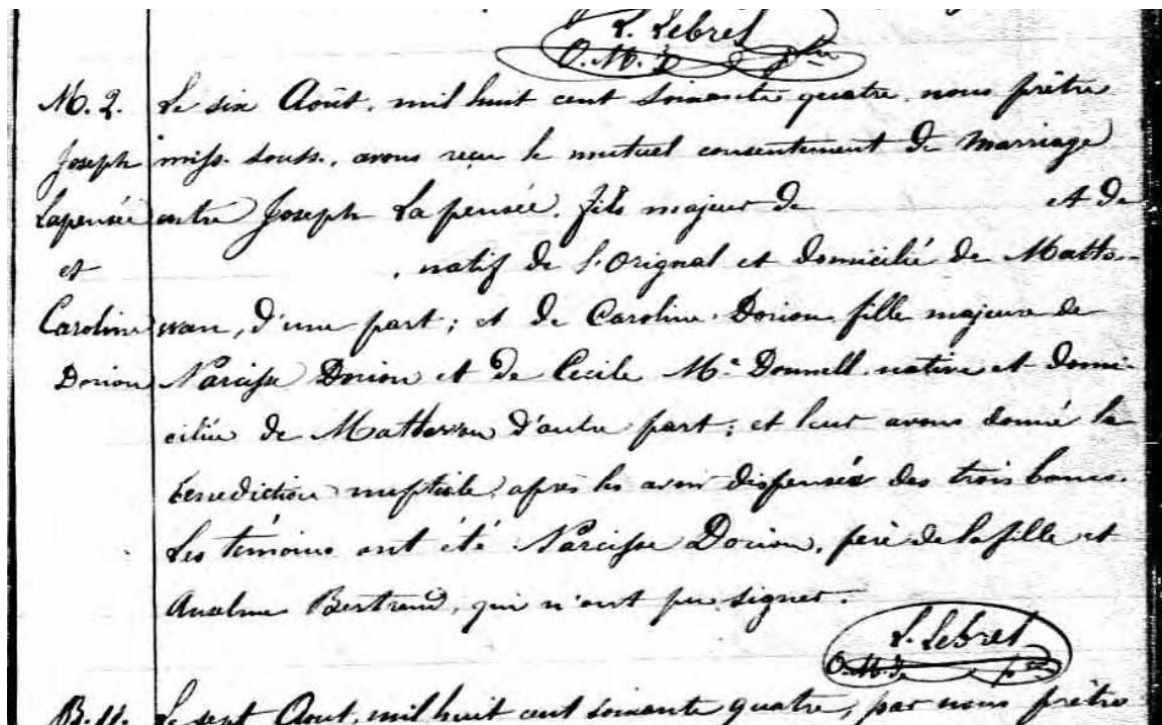 L. Lebret
O.M.I. ptre
M. 2. Le six Août, mil huit cent soixante quatre, nous prêtre
Joseph miss. souss., avons reçu le mutuel consentement de marriage
Lapensée entre Joseph Lapensée, fils majeur de et de
et , natif de l'Orignal et domicilié de Matta-
Caroline wan, d'une part; et de Caroline Dorion fille majeure de
Dorion Narcisse Dorion et de Cecile Mc Donnell, native et domi-
ciliée de Mattawan d'autre part; et leur avons donné la
benediction nuptiale, après les avoir dispensés des trois bancs.
Les témoins ont été Narcisse Dorion, père de la fille et
Anselme Bertrand, qui n'ont pu signer.
L. Lebret
O.M.I. ptre
B. 11. Le sept Aout, mil huit cent soixante quatre, par nous prêtre